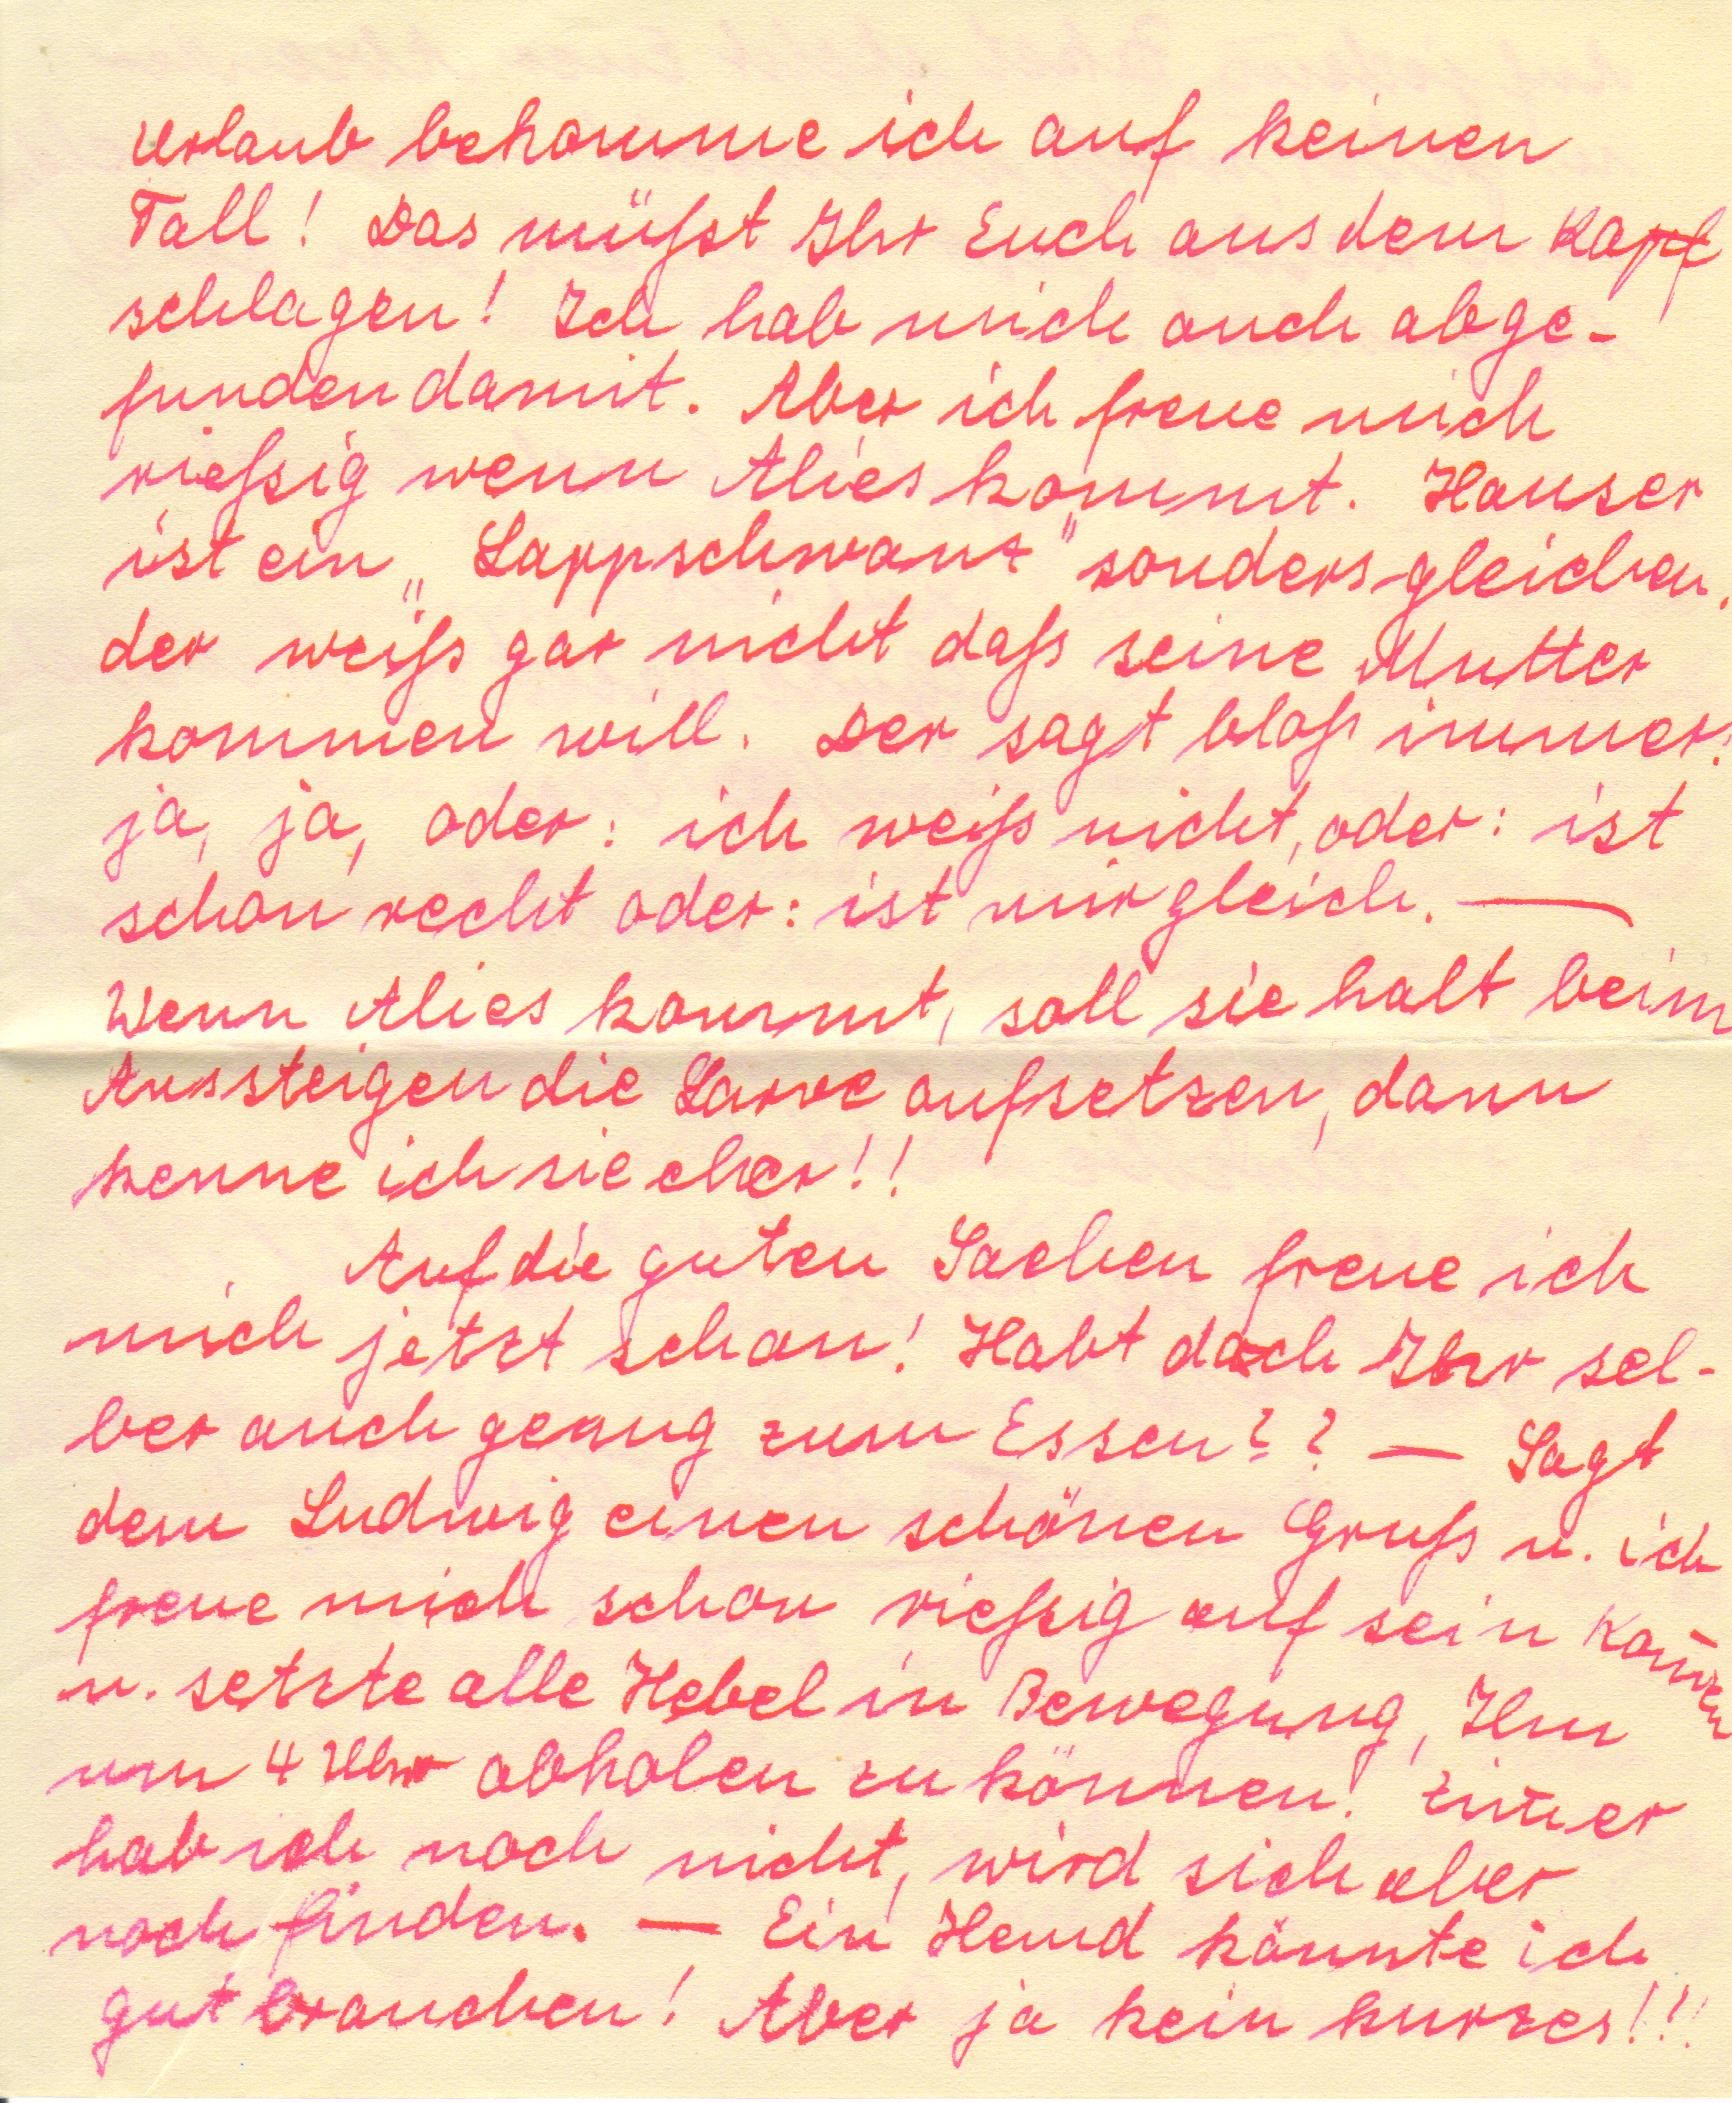 Urlaub bekomme ich auf keinen
Fall! Das müßst Ihr Euch aus dem Kopf
schlagen! Ich hab mich auch abge-
funden damit. Aber ich freue mich
rießig wenn Alies kommt. Hauser
ist ein „Lappschwanz" sondersgleichen,
der weiß gar nicht daß seine Mutter
kommen will. Der sagt bloß immer:
ja, ja, oder: ich weiß nicht, oder: ist
schon recht oder: ist mir gleich. —
Wenn Alies kommt, soll sie halt beim
Aussteigen die Larve aufsetzen, dann
kenne ich sie eher!!
Auf die guten Sachen freue ich
mich jetzt schon! Habt doch Ihr sel-
ber auch genug zum Essen?? — Sagt
dem Ludwig einen schönen Gruß u. ich
freue mich schon rießig auf sein Kom̄en
u. setzte alle Hebel in Bewegung, Ihn
um 4 Uhr abholen zu können! Zim̄er
hab ich noch nicht, wird sich aber
noch finden. — Ein Hemd könnte ich
gut brauchen! Aber ja kein kurzes!!!